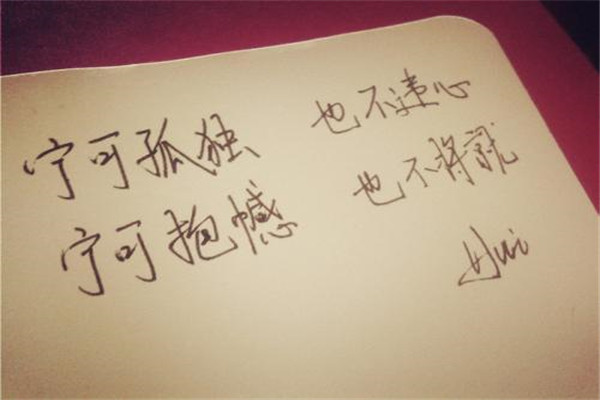 宁可孤独 也不违心
宁可抱憾 也不将就
Hui